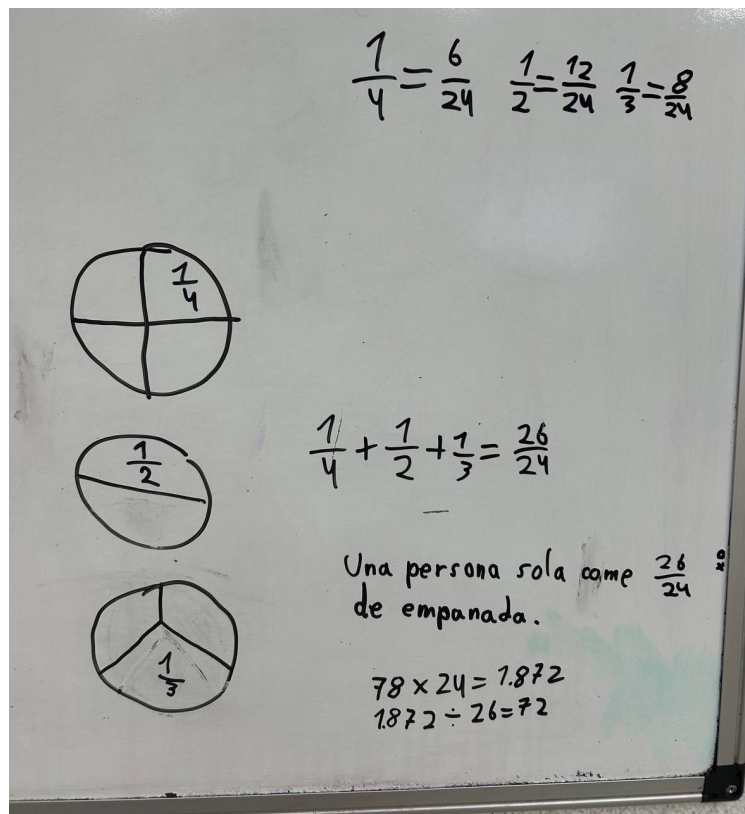 1/4 = 6/24 1/2 = 12/24 1/3 = 8/24
1/4
1/2
1/4 + 1/2 + 1/3 = 26/24
Una persona sola come 26/24
de empanada.
1/3
78 × 24 = 1.872
1.872 ÷ 26 = 72